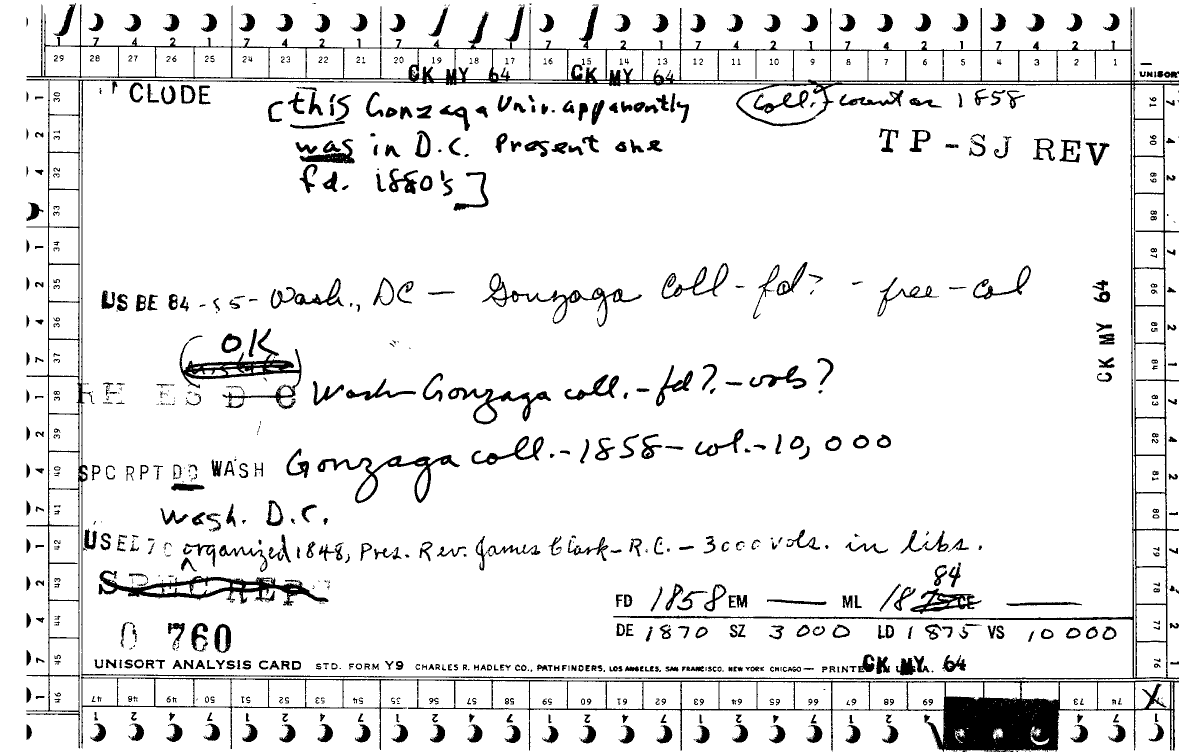 7 4 2 1 7 4 2 1 7 4 2 1 7 4 2 1 7 4 2 1 7 4 2 1 7 4 2 1
29 28 27 26 25 24 23 22 21 20 19 18 17 16 15 14 13 12 11 10 9 8 7 6 5 4 3 2 1
CK MY 64 CK MY 64 UNISORT
CLUDE
[this Gonzaga Univ. apparently
was in D.C. Present one
fd. 1880's]
Coll. - count as 1858
TP-SJ REV
US BE 84-85- Wash., DC — Gonzaga Coll - fd? - free - col
CK MY 64
OK
RH ES D C Wash - Gonzaga coll. - fd? - vols?
SPC RPT DC WASH Gonzaga coll. - 1858 - col. - 10,000
Wash. D.C.
US ED 70 organized 1848, Pres. Rev. James Clark - R.C. - 3000 vols. in libs.
SPEC REPS
84
FD 1858 EM — ML 1875 CE —
DE 1870 SZ 3000 LD 1875 VS 10000
0 760
UNISORT ANALYSIS CARD STD. FORM Y9 CHARLES R. HADLEY CO., PATHFINDERS, LOS ANGELES, SAN FRANCISCO, NEW YORK CHICAGO — PRINTED IN U.S.A.
CK MY 64
30 31 32 33 34 35 36 37 38 39 40 41 42 43 44 45 46
91 90 89 88 87 86 85 84 83 82 81 80 79 78 77 76
47 48 49 50 51 52 53 54 55 56 57 58 59 60 61 62 63 64 65 66 67 68 69 73 74